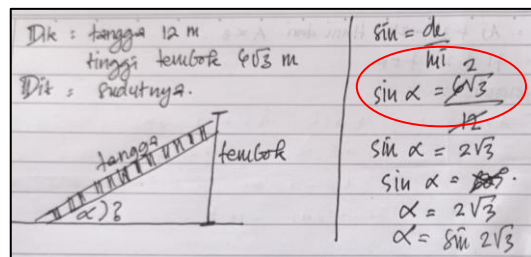 Dik : tangga 12 m
tinggi tembok 6√3 m
Dit : sudutnya.
tangga
tembok
α)?
sin = de
mi
2
sin α = 6√3
12
sin α = 2√3
sin α =
α = 2√3
α = sin 2√3